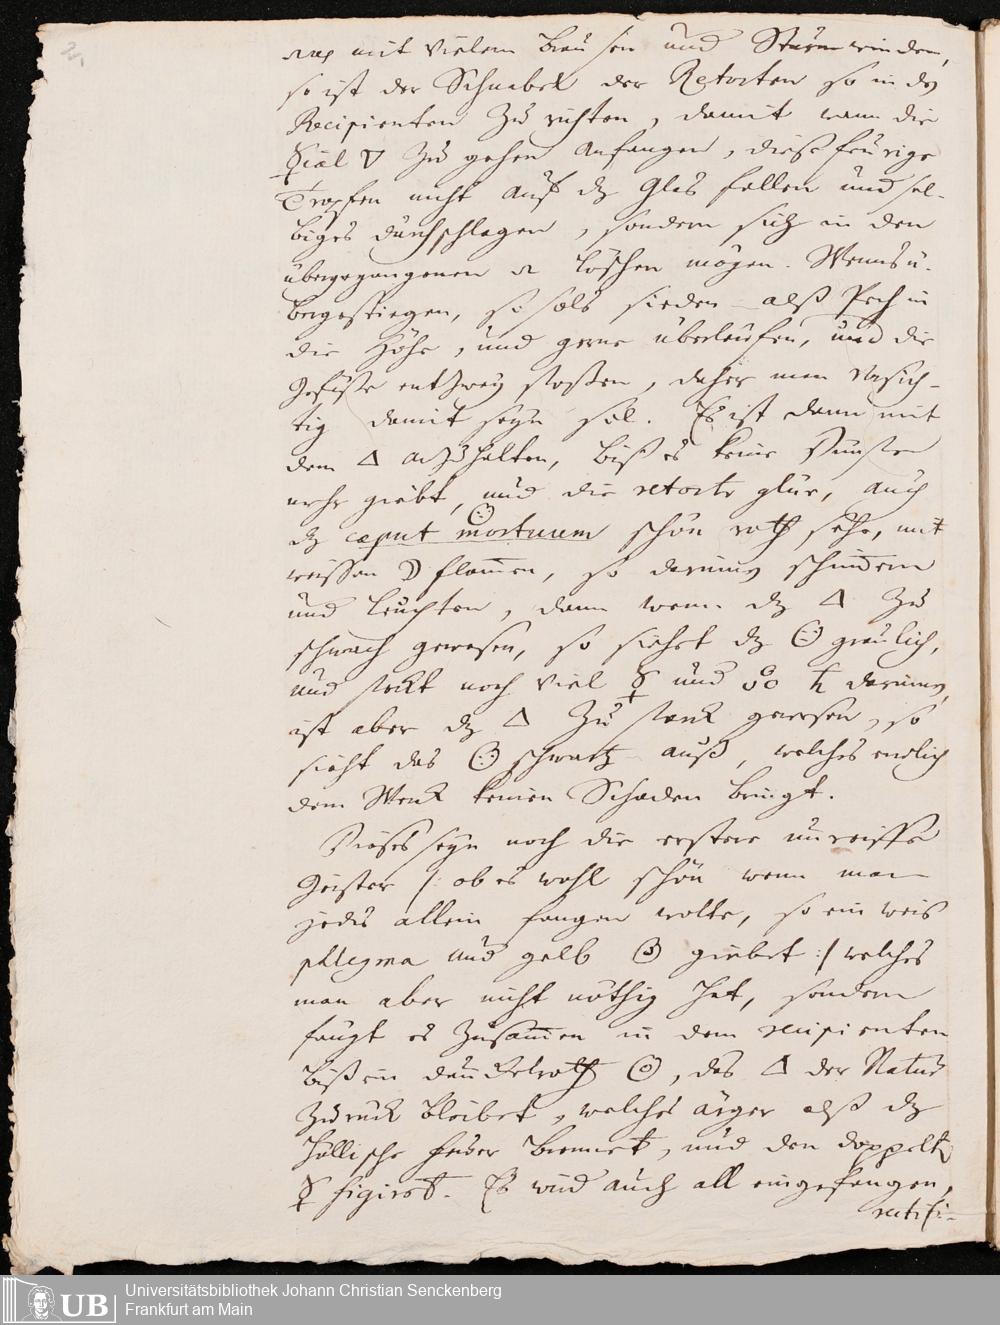 mit vielem Brausen und Sturmwinden,
so ist der Schnabel der Retorten so in dz
Recipienten zu richten, damit wann die
☿ial ▽ zu gehen anfangen, diese feurige
Tropfen nicht auf dz Glas fallen und sel-
biges durchschlagen, sondern sich in den
übergegangenen löschen mögen. Wenns ü-
bergestiegen, so sols sieden alß Pech in
die Höhe, und gerne überlaufen, und die
Gefäße entzwey stoßen, daher man vorsich-
tig damit seyn sol. Es ist dann mit
dem △ anzuhalten, biß es keine Dünste
mehr giebt, und die retorte glüe, auch
dz caput mortuum schön roth sehe, mit
weissen flam̅en, so darinn
und leuchten, dann wenn dz △ zu
schwach gewesen, so siehet dz gräulich,
und steckt noch viel ☿ und ♄ darinn,
ist aber dz △ zu stark gewesen, so
sieht das schwartz auß, welches endlich
dem Werk keinen Schaden bringt.
Dieses seyn noch die erstere unreiffe
Geister /: ob es wohl schön wenn man
jedes allein fangen wolte, so ein weis
phlegma und gelb giebet :/ welches
man aber nicht nöthig hat, sondern
fangt es zusam̅en in dem recipienten
biß ein dunkelroth, das △ der Natur
zuruck bleibet, welches ärger alß dz
höllische feuer brennet, und den doppelt
☿ figiret. Es wird auch all eingefangen,
rectifi-
Universitätsbibliothek Johann Christian Senckenberg
Frankfurt am Main
UB